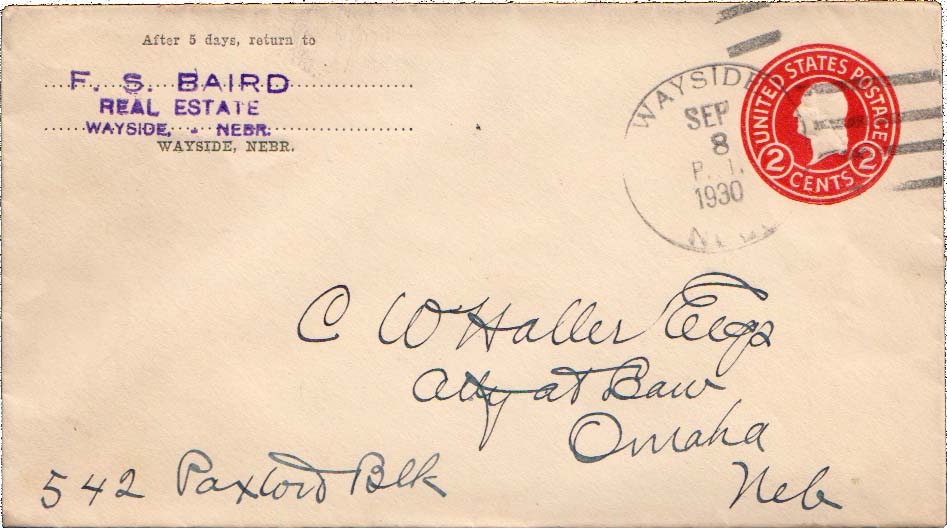 After 5 days, return to
F. S. BAIRD
REAL ESTATE
WAYSIDE, - NEBR.
WAYSIDE, NEBR.
WAYSIDE
SEP
8
1930
UNITED STATES POSTAGE
2 CENTS 2
C W Haller Esqs
Atty at Law
Omaha
Neb
542 Paxton Blk